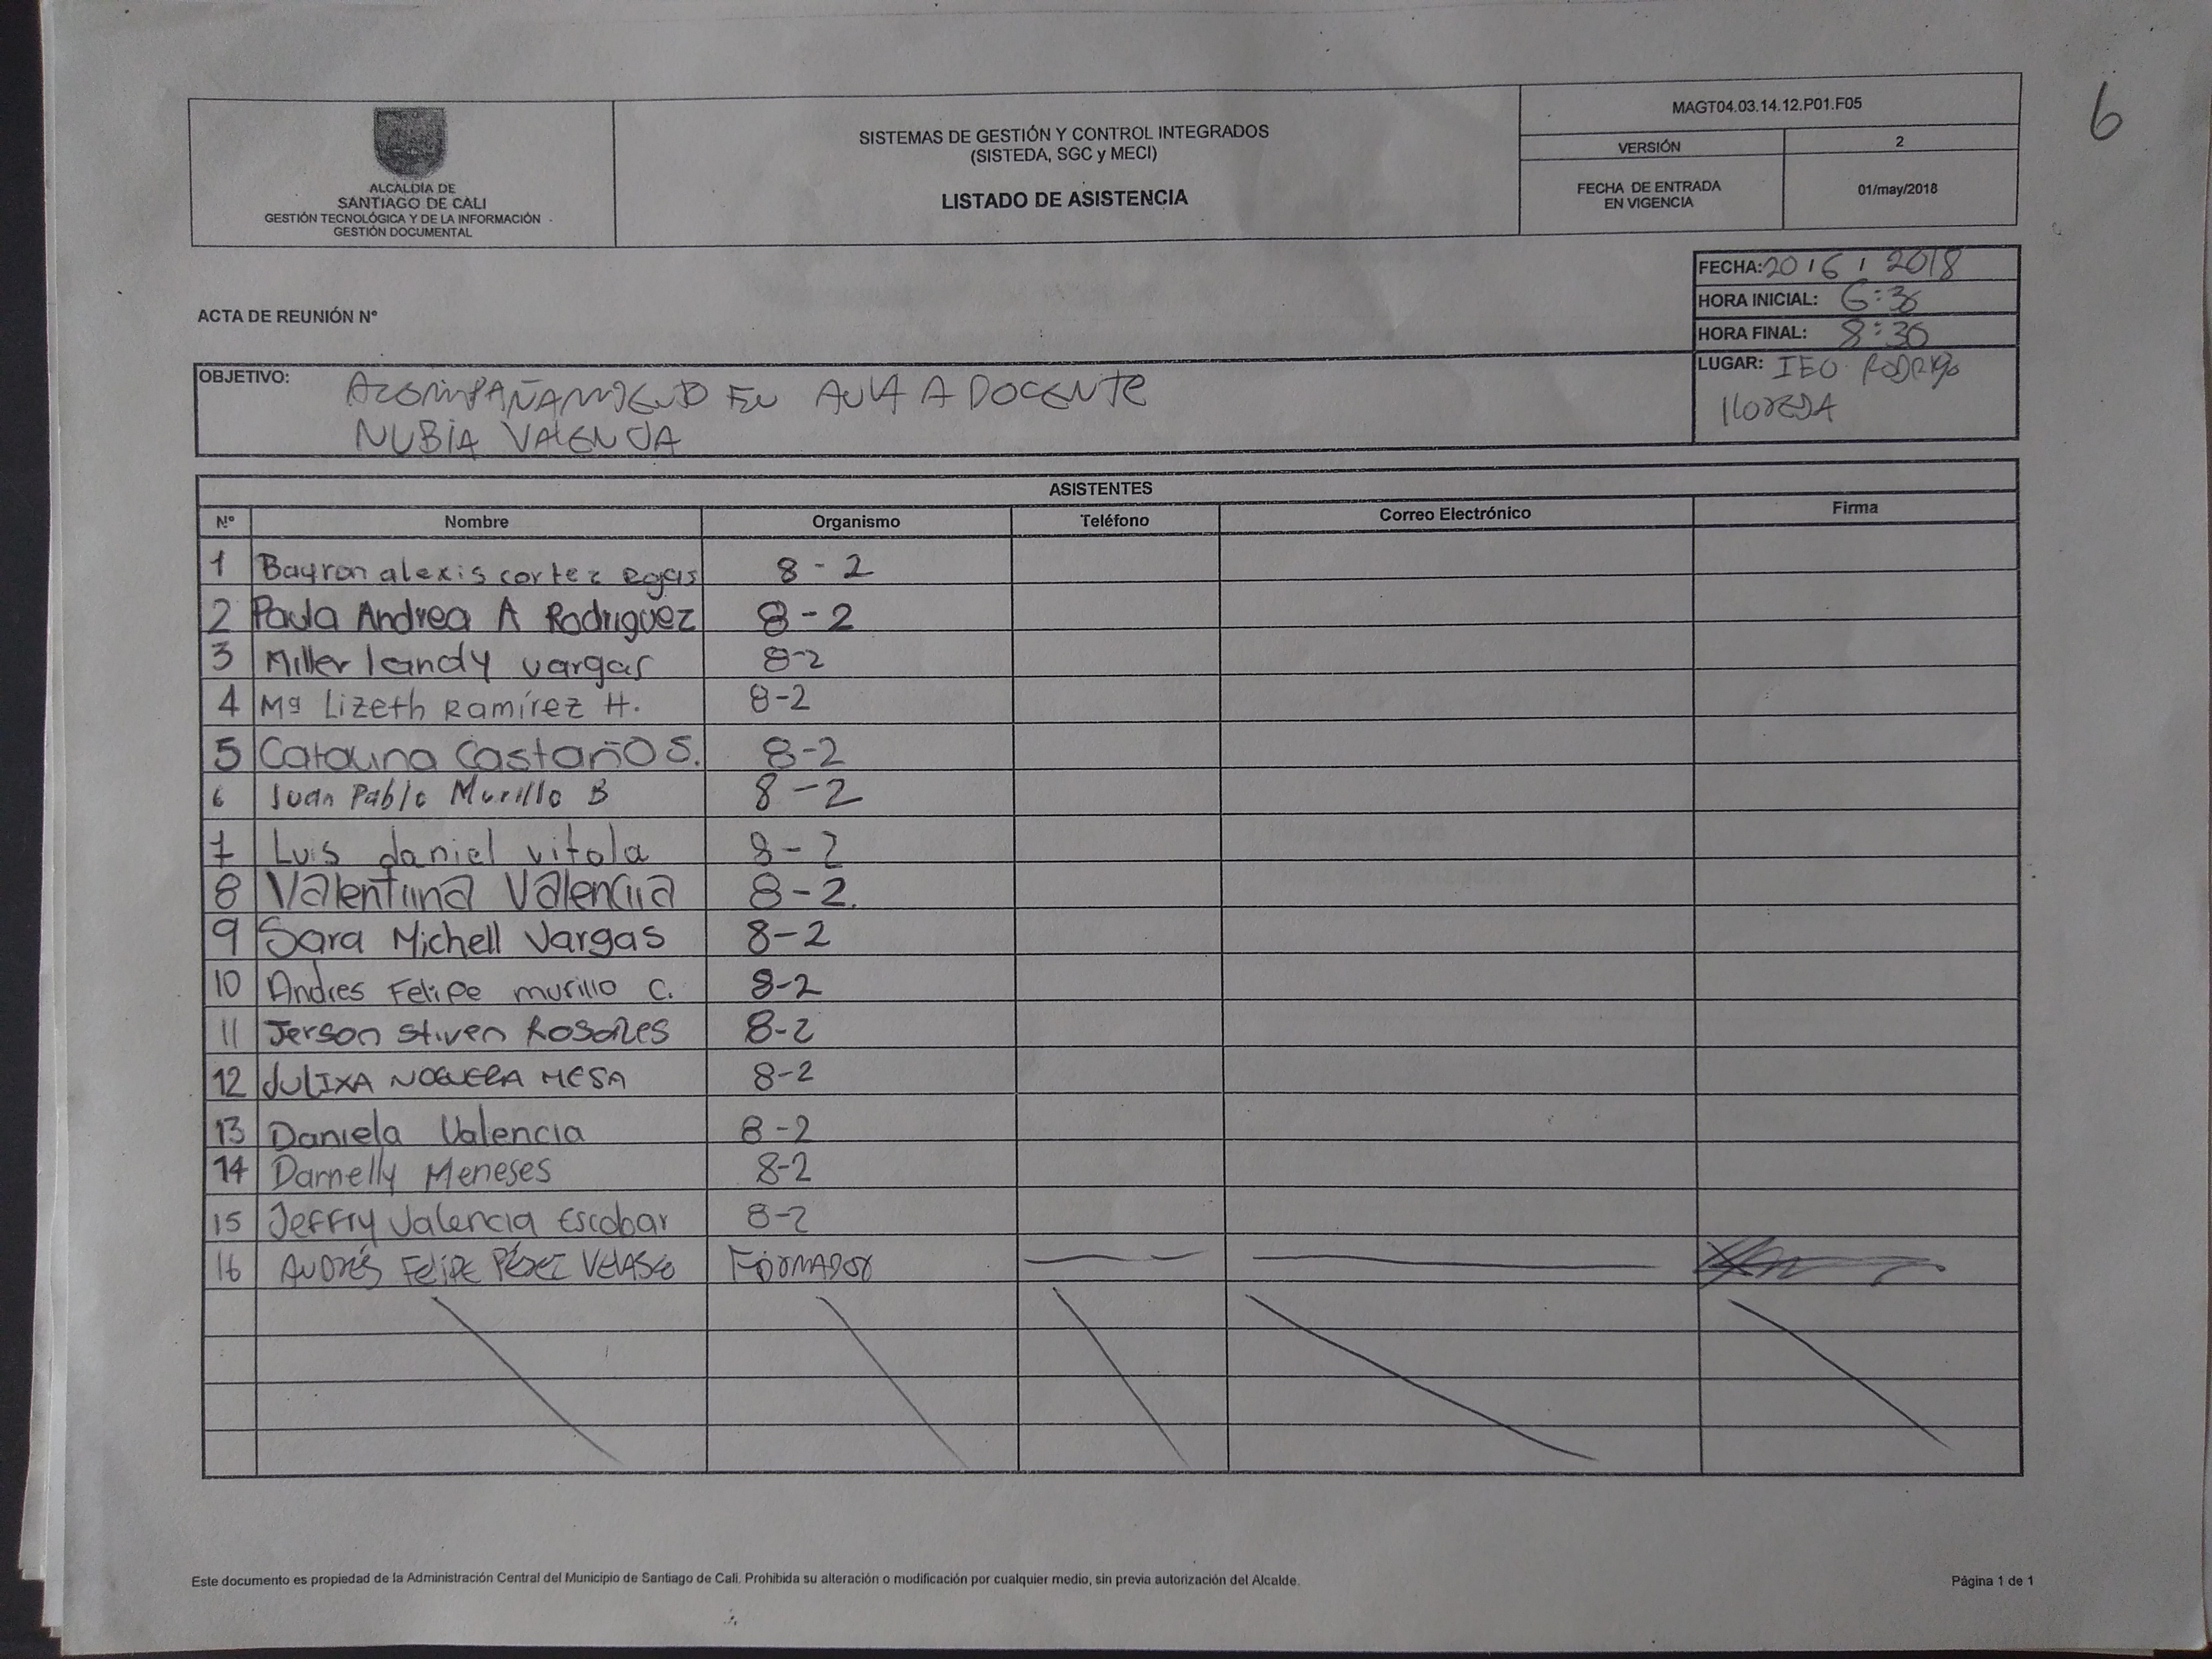 6
ALCALDÍA DE
SANTIAGO DE CALI
GESTIÓN TECNOLÓGICA Y DE LA INFORMACIÓN
GESTIÓN DOCUMENTAL
SISTEMAS DE GESTIÓN Y CONTROL INTEGRADOS
(SISTEDA, SGC y MECI)
LISTADO DE ASISTENCIA
MAGT04.03.14.12.P01.F05
VERSIÓN 2
FECHA DE ENTRADA
EN VIGENCIA 01/may/2018
FECHA: 20 / 6 / 2018
HORA INICIAL: 6:30
HORA FINAL: 8:30
LUGAR: IEO RODRIGO
LLOREDA
ACTA DE REUNIÓN N°
OBJETIVO: ACOMPAÑAMIENTO EN AULA A DOCENTE
NUBIA VALENCIA
ASISTENTES
N° Nombre Organismo Teléfono Correo Electrónico Firma
1 Bayron alexis cortez Rojas 8 - 2
2 Paula Andrea A Rodriguez 8 - 2
3 Miller landy vargas 8-2
4 Mª Lizeth Ramírez H. 8-2
5 Catalina Castaño S. 8-2
6 Juan Pablo Murillo B 8 - 2
7 Luis daniel vitola 8 - 2
8 Valentina Valencia 8-2.
9 Sara Michell Vargas 8-2
10 Andres Felipe murillo C. 8-2
11 Jerson stiven Rosales 8-2
12 JULIXA NOGUERA MESA 8-2
13 Daniela Valencia 8-2
14 Darnelly Meneses 8-2
15 Jeffry Valencia Escobar 8-2
16 ANDRÉS FELIPE PÉREZ VELASCO FORMADOR
Este documento es propiedad de la Administración Central del Municipio de Santiago de Cali. Prohibida su alteración o modificación por cualquier medio, sin previa autorización del Alcalde.
Página 1 de 1